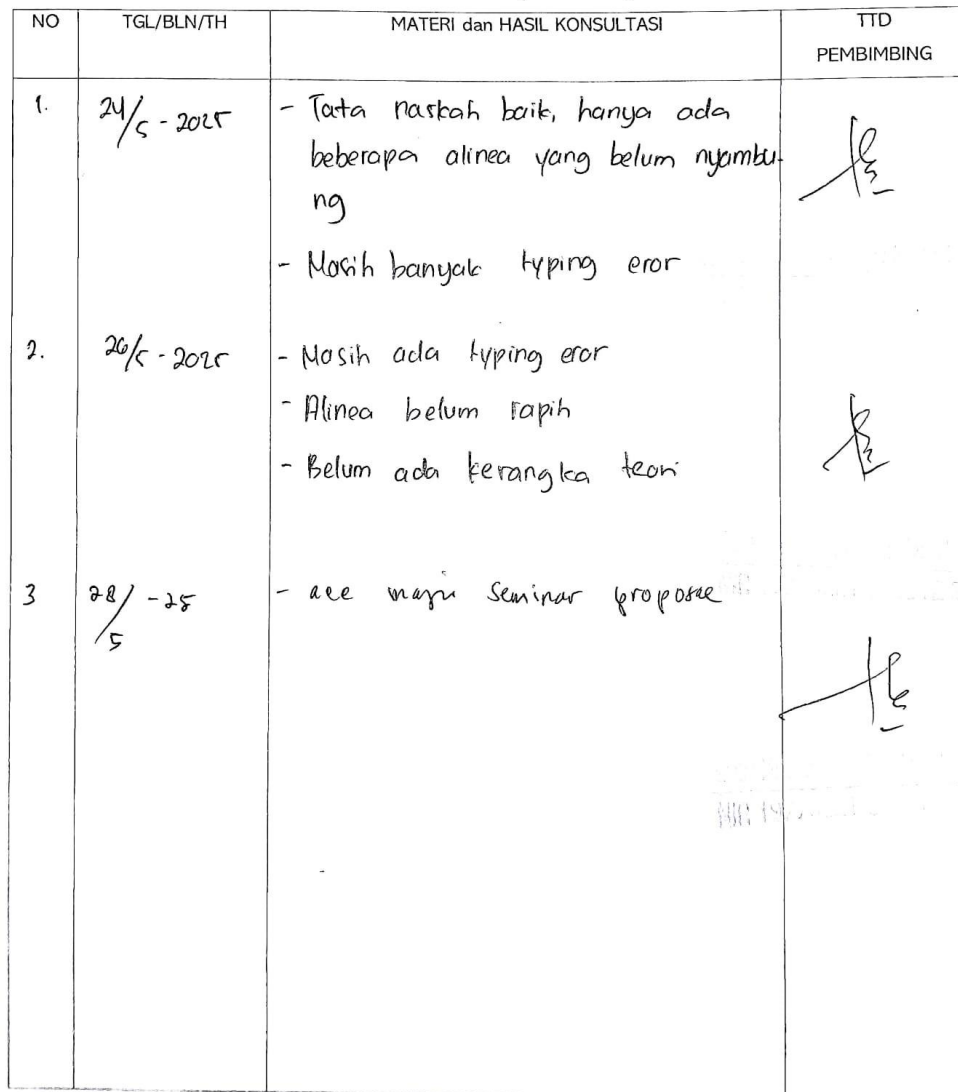 NO TGL/BLN/TH MATERI dan HASIL KONSULTASI TTD
PEMBIMBING
1. 24/5 - 2025 - Tata naskah baik, hanya ada
beberapa alinea yang belum nyambu-
ng
- Masih banyak typing eror
2. 26/5 - 2025 - Masih ada typing eror
- Alinea belum rapih
- Belum ada kerangka teori
3 28/5 - 25 - acc maju seminar proposal